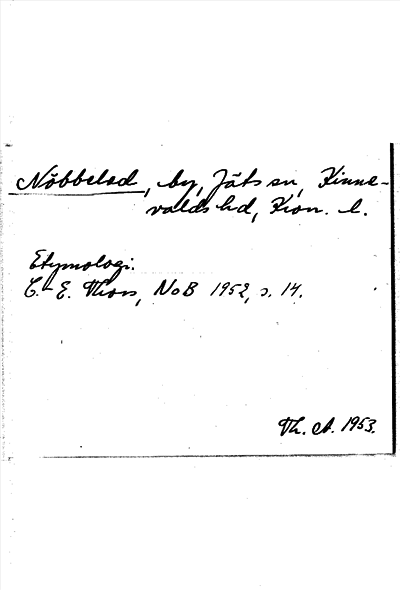 Nöbbelad, by, Jäts sn, Kinne-
valds hd, Kron. l.
Etymologi.
C.-E. Thors, NoB 1952, s. 14.
Th. A. 1953.